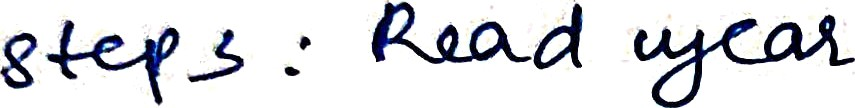 steps : Read year